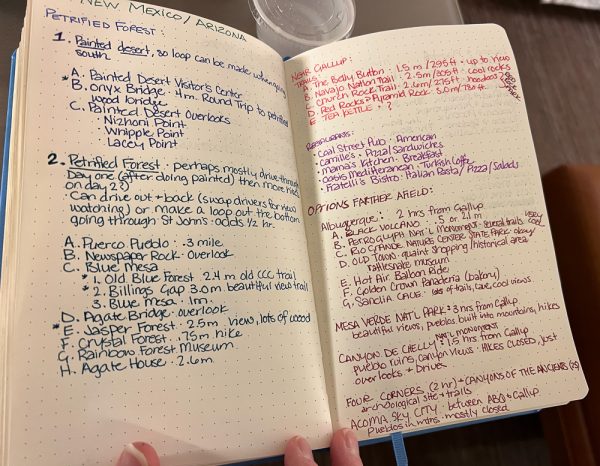 NEW MEXICO / ARIZONA
PETRIFIED FOREST:
1. Painted desert, so loop can be made when going
south
A. Painted Desert Visitor's Center
* B. Onyx Bridge: 4m. Round Trip to petrified
wood bridge
C. Painted Desert Overlooks
• Nizhoni Point
• Whipple Point
• Lacey Point
2. Petrified Forest: perhaps mostly drive-through
Day one (after doing painted) then more hikes
on day 2?)
Can drive out + back (swap drivers for view
watching) or make a loop out the bottom
going through St John's: adds 1/2 hr.
A. Puerco Pueblo: .3 mile
B. Newspaper Rock: Overlook
C. Blue Mesa
* 1. Old Blue Forest 2.4 m old CCC trail
* 2. Billings Gap 3.0m beautiful view trail
3. Blue Mesa: 1m.
D. Agate Bridge: overlook
* E. Jasper Forest: 2.5m view, lots of wood
F. Crystal Forest: .75m hike
G. Rainbow Forest Museum
H. Agate House: 2.6m
NEAR GALLUP:
TRAILS:
A. The Belly Button: 1.5 m / 295 ft • up to view
B. Navajo Nation Trail: 2.5m / 305 ft cool rocks
C. Church Rock Trail: 2.6m / 275 ft hoodoos
D. Red Rocks Pyramid Rock: 3.0m / 784 ft
E. TEA KETTLE: ?
RESTAURANTS:
• Coal Street Pub: American
• Camille's: Pizza/Sandwiches
• Mama's Kitchen: Breakfast
• Oasis Mediterranean: Turkish Coffee
• Fratelli's Bistro: Italian Pasta / Pizza / Salads
OPTIONS FARTHER AFIELD:
Albuquerque: 2 hrs from Gallup
A. BLACK VOLCANO: .5 or 2.1 m
B. PETROGLYPH NAT'L Monument - several trails
C. RIO GRANDE NATURE CENTER STATE PARK: easy
D. OLD TOWN: quaint shopping / historical area
rattlesnake museum
E. Hot Air Balloon Ride
F. Golden Crown Panaderia (bakery)
G. SANDIA CAVE: lots of trails, cave, cool views
MESA VERDE NAT'L PARK: 3 hrs from Gallup
beautiful views, pueblos built into mountains, hikes
CANYON DE CHELLY NAT'L MONUMENT: 1.5 hrs from Gallup
pueblo ruins, canyon views: HIKES CLOSED, just
overlooks + Drive
FOUR CORNERS (2 hr) + CANYONS OF THE ANCIENTS
archaeological site + trails
ACOMA SKY CITY: between ABQ + Gallup
Pueblos in mtns: mostly closed